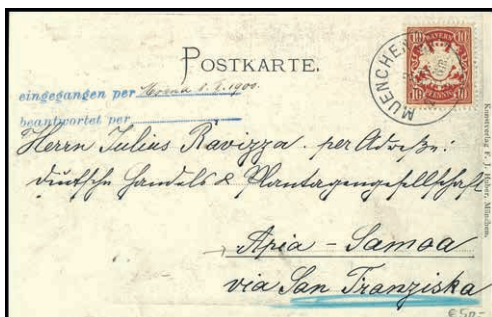 POSTKARTE.
BAYERN
10 10
PFENNIG
10 10
MUENCHEN
eingegangen per Moana 8. 2. 1900.
beantwortet per
Herrn Julius Ravizza. per Adreße:
Deutsche Handels & Plantagengesellschaft
Apia - Samoa
via San Franziska
Kunstverlag F. J. Huber, München.